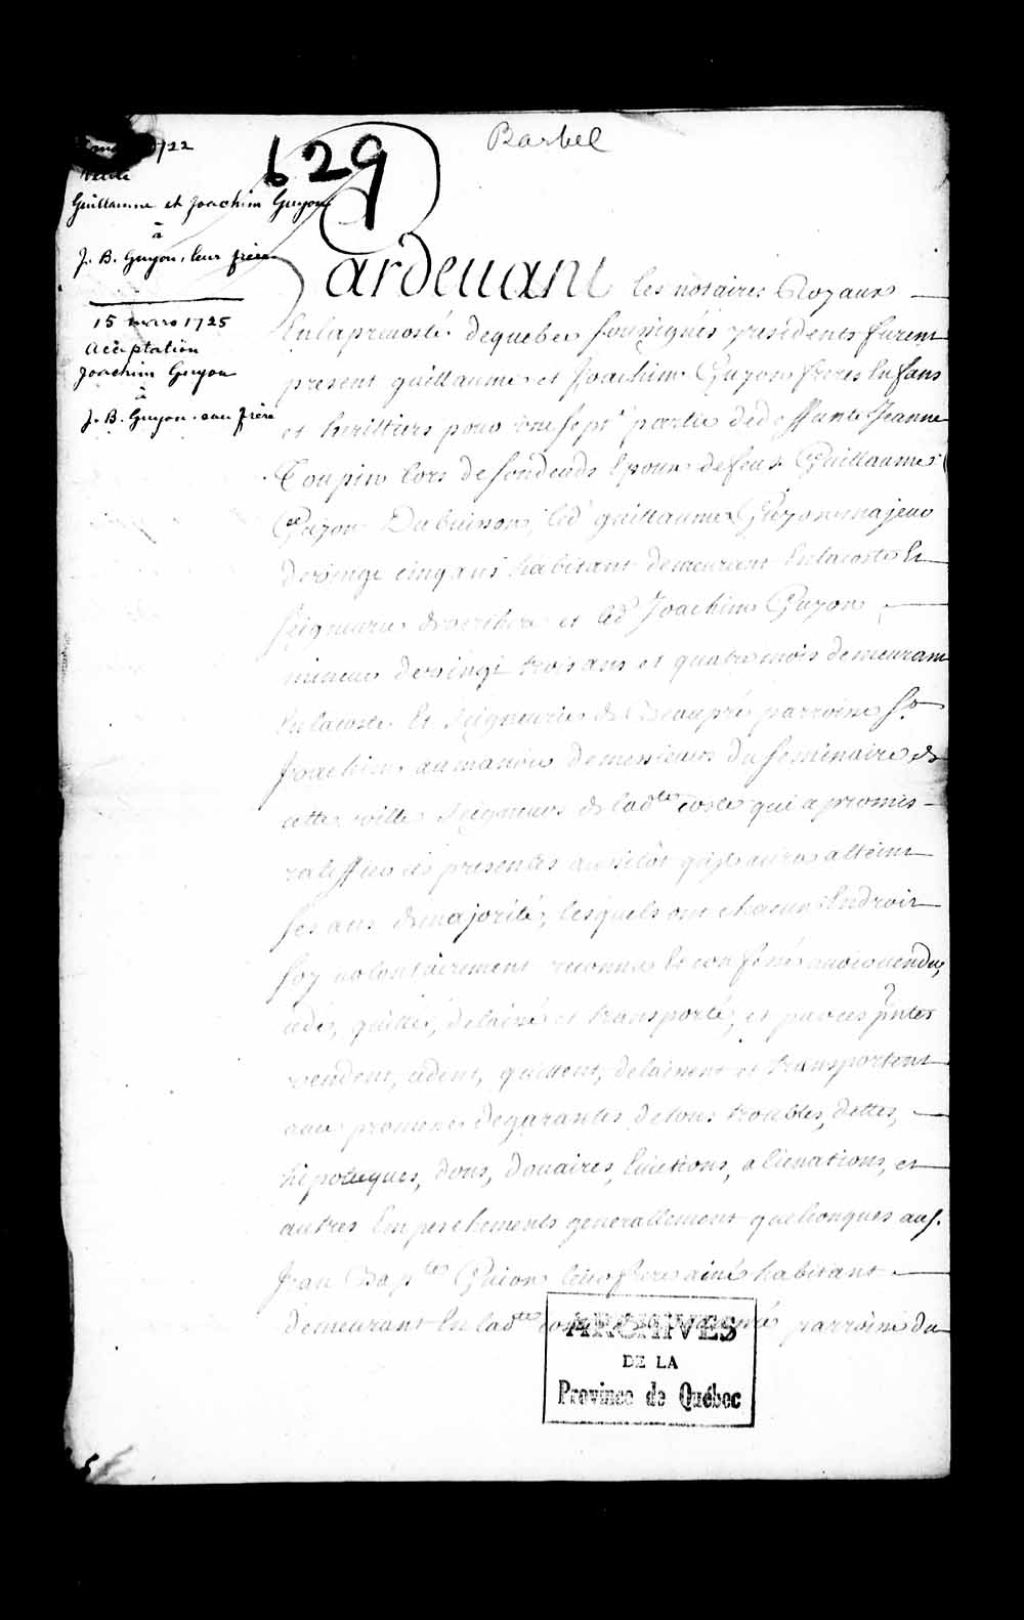 Barbel
629
1722
Vente
Guillaume et Joachim Guyon
à
J. B. Guyon, leur frère
15 mars 1725
Acceptation
Joachim Guyon
à
J. B. Guyon son frère
Pardevant les notaires Royaux
En la prevosté de quebec soussignés residents furent
present guillaume et Joachim Guyon freres Enfans
et heritiers pour une sept.e partie de deffunte Jeanne
Toupin lors de son deceds Epouse de feu Guillaume
Guyon Dubuisson, led. guillaume Guyon majeur
de vingt cinq ans habitant demeurant En la coste Et
Seigneurie et led. Joachim Guyon
mineur de vingt trois ans et quatre mois demeurant
En la coste Et Seigneurie de Beaupré parroisse St
Joachim au manoir de messieurs du Seminaire de
cette ville Seigneurs de lad.te coste qui a promis
ratiffier ces presentes aussitôt qu'il aura atteint
ses ans de majorité; lesquels ont chacun Endroit
soy volontairement reconnu Et confessé avoir vendu,
cedé, quitté, delaissé et transporté, et par ces pntes
vendent, cedent, quittent, delaissent et transportent
avec promesse de garantir de tous troubles, dettes,
hipoteques, dons, douaires, Evictions, alienations, et
autres Empeschements generallement quelconques au s.
Jean Bap.te Guion leur frere ainé habitant
demeurant En lad.te coste parroisse du
ARCHIVES
DE LA
Province de Québec